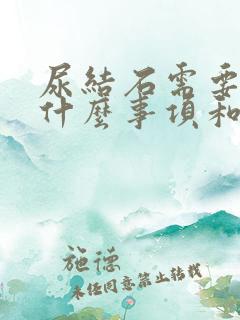 尿結石需要
什麼事項和
施德
未经同意禁止转载